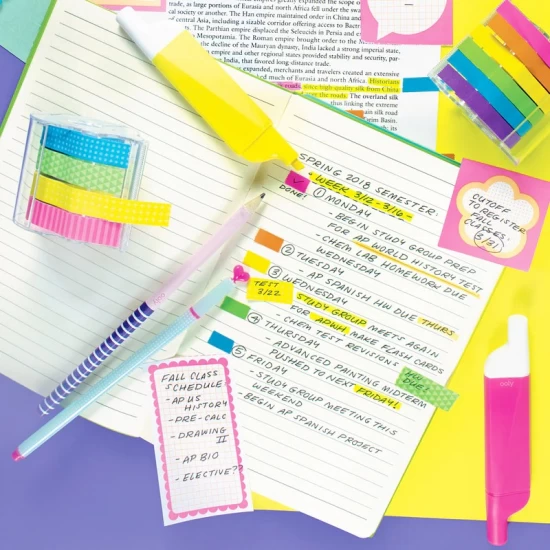 greatly expanded the scope of
trade, as large portions of Eurasia and north Africa fell under the sway
society or another. The Han empire maintained order in China and
central Asia, including a sizable corridor offering access to
The Parthian empire displaced the Seleucids in Persia and
Mesopotamia. The Roman empire brought order to the
the decline of the Mauryan dynasty, India lacked a strong imperial state,
empire and other regional states provided stability and security, par-
India, that favored long-distance trade.
expanded, merchants and travelers created an extensive
much of Eurasia and north Africa. Historians
roads, since high-quality silk from China
over the roads. The overland silk
thus linking the extreme
main silk road
Tarim Basin.
SPRING 2018 SEMESTER:
- WEEK 3/12 - 3/16 -
DONE!
① MONDAY
- BEGIN STUDY GROUP PREP
FOR AP WORLD HISTORY TEST
- CHEM LAB HOMEWORK DUE
WEDNESDAY
② TUESDAY
- AP SPANISH HW DUE THURS
③ WEDNESDAY
TEST
3/22
- STUDY GROUP MEETS AGAIN
FOR APWH, MAKE FLASH CARDS
- CHEM TEST REVISIONS DUE
④ THURSDAY
- ADVANCED PAINTING MIDTERM
PUSHED TO NEXT FRIDAY!
⑤ FRIDAY
- STUDY GROUP MEETING THIS
WEEKEND
- BEGIN AP SPANISH PROJECT
CUTOFF
TO REGISTER:
FALL
CLASSES:
(3/31)
FALL CLASS
SCHEDULE
- AP US
HISTORY
- PRE-CALC
- DRAWING
II
- AP BIO
- ELECTIVE??
ooly